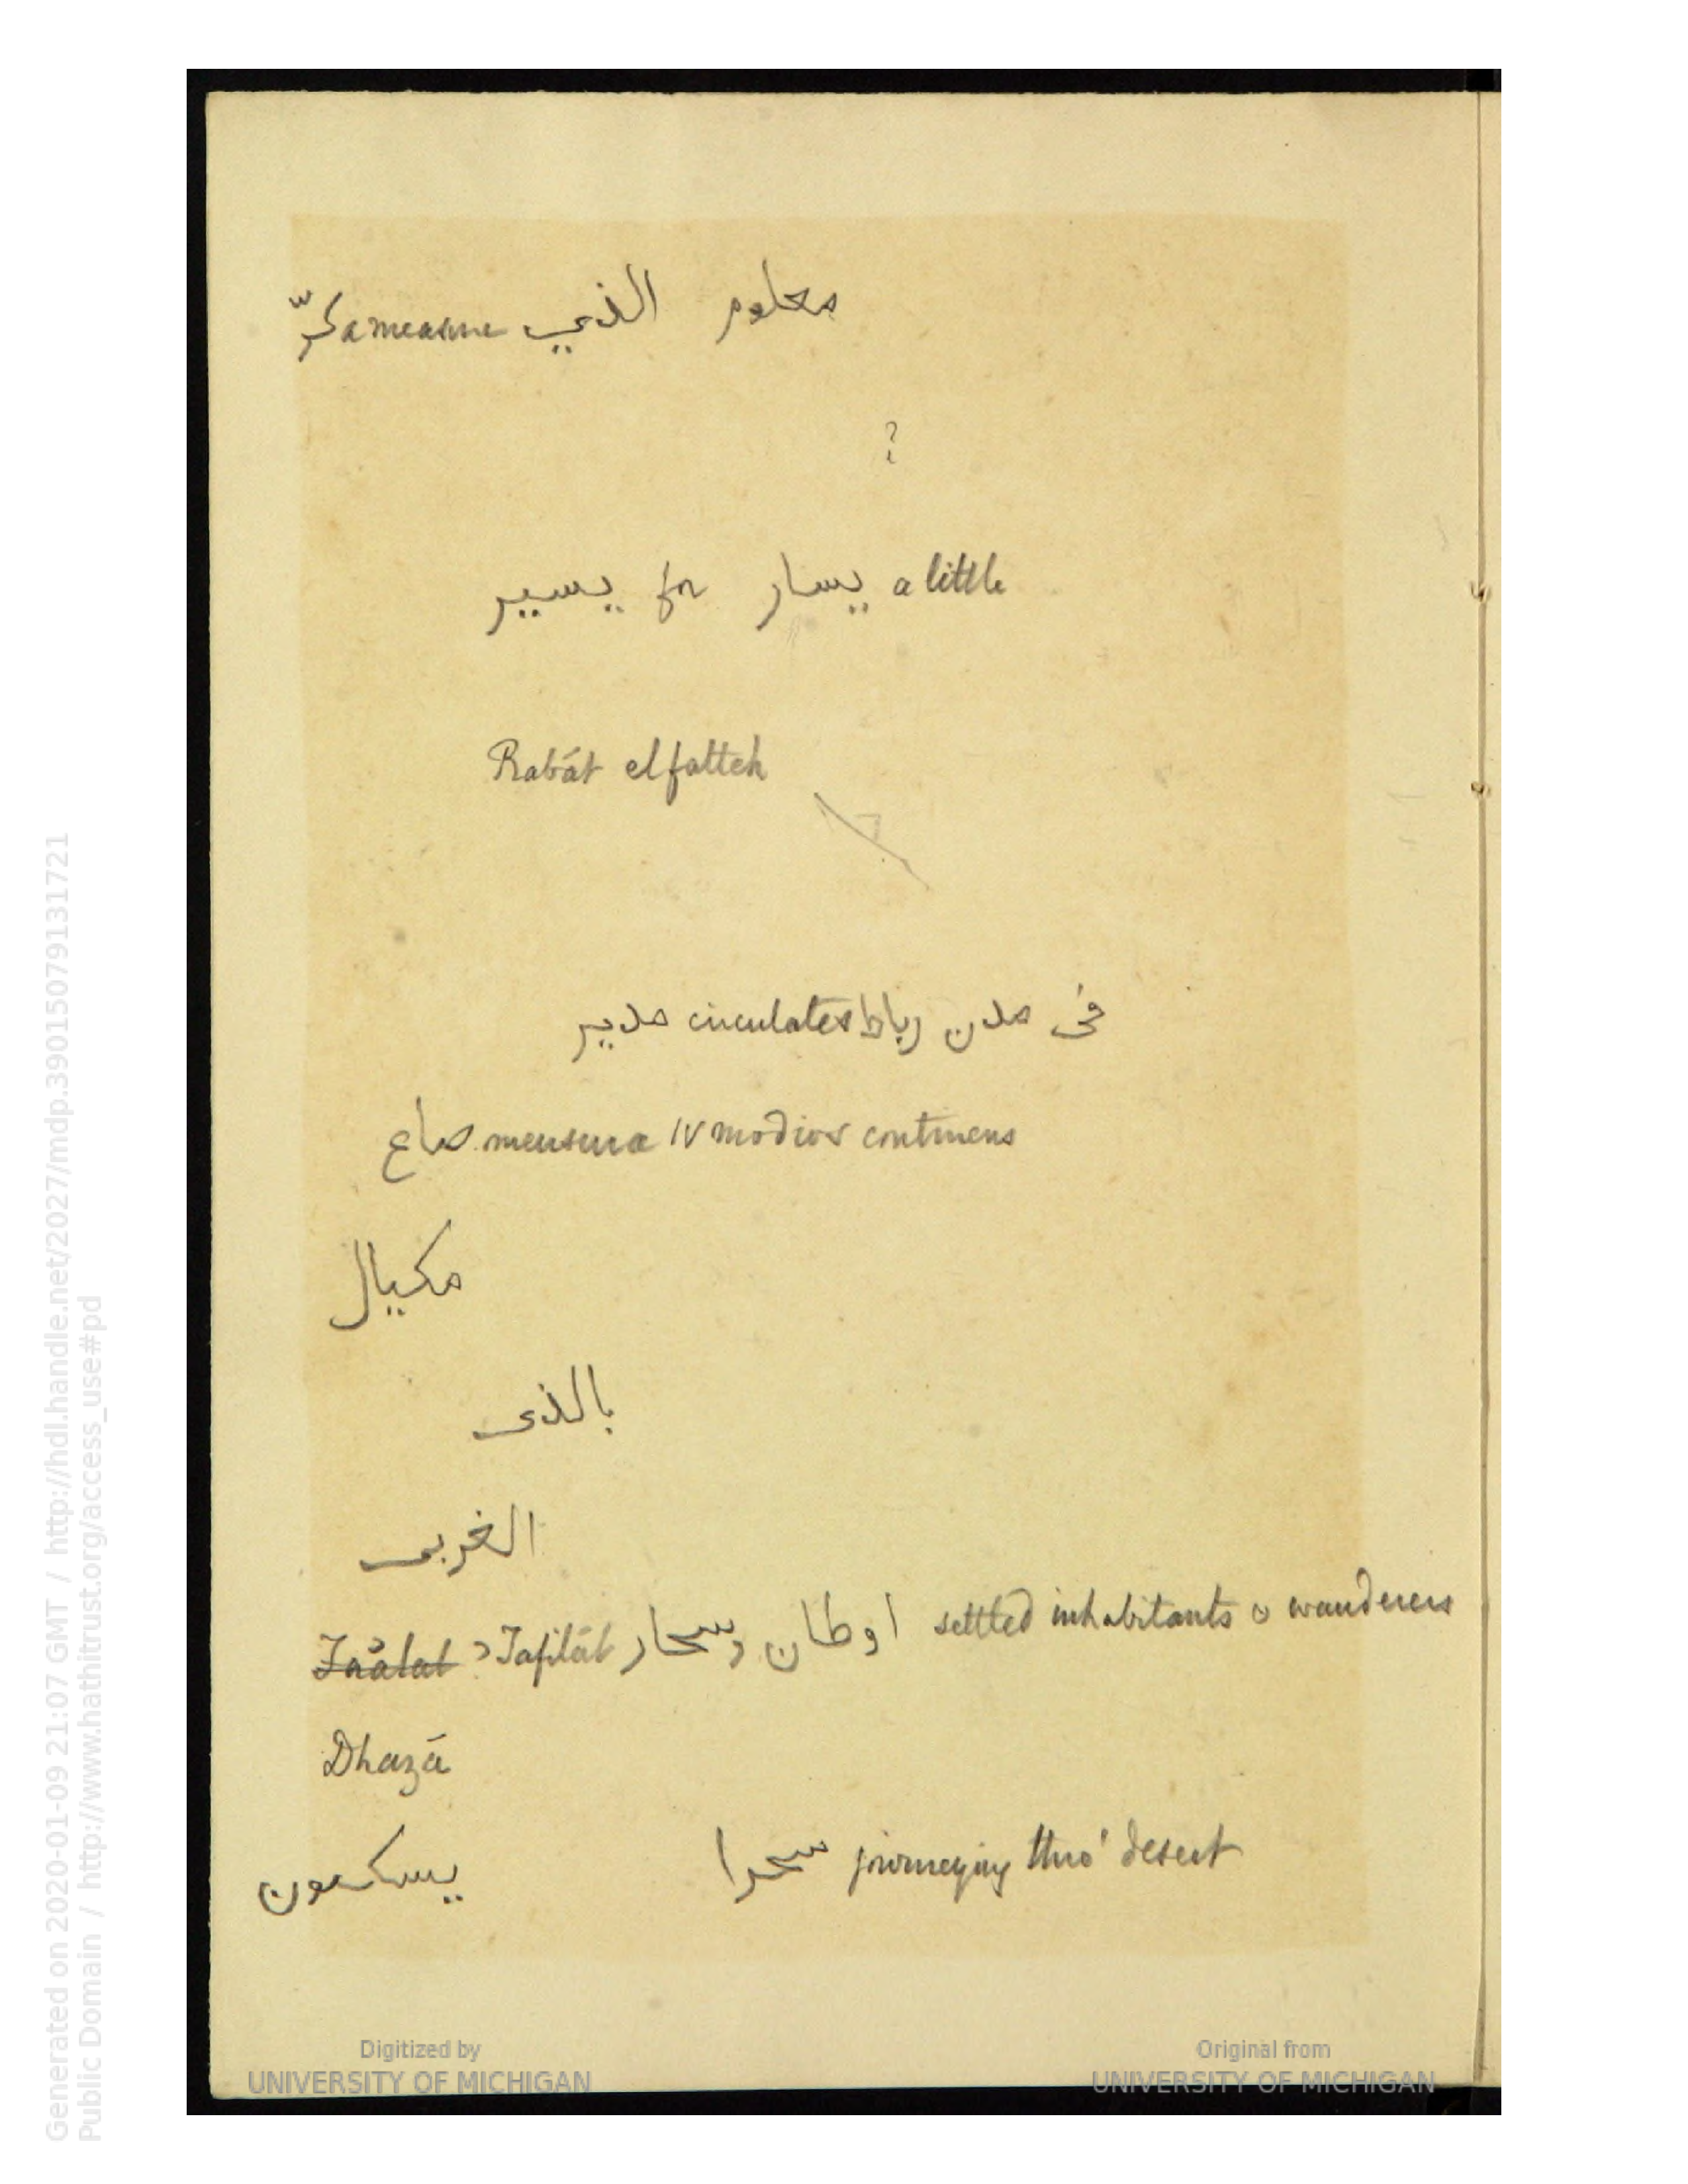 معلوم الذي a measure
?
يسير for يسار a little
Rabát elfatteh
فى مدن رباط circulates مدير
صاع mensura IV modios continens
مكيال
بالذى
الغربى
Tafilát اوطان وسحار settled inhabitants & wanderers
Dhazā
سحرا journeying thro' desert
Generated on 2020-01-09 21:07 GMT / http://hdl.handle.net/2027/mdp.39015079131721
Public Domain / http://www.hathitrust.org/access_use#pd
Digitized by
UNIVERSITY OF MICHIGAN
Original from
UNIVERSITY OF MICHIGAN